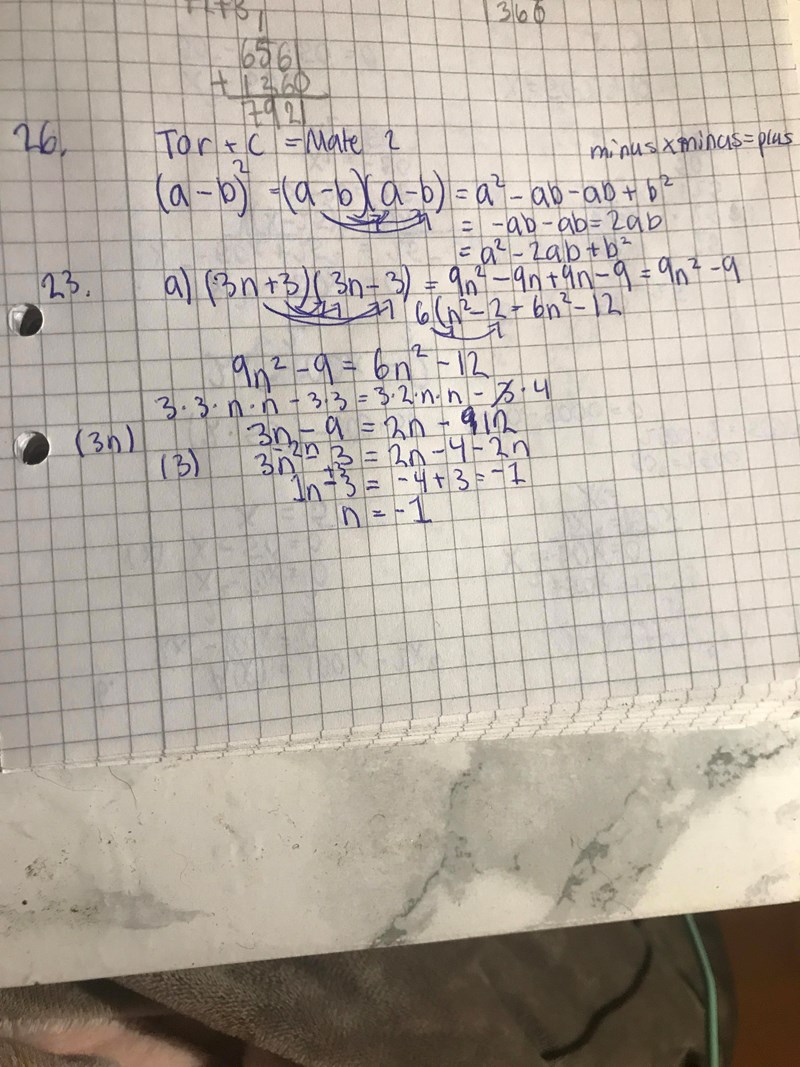 360
1
656
+ 1360
7921
26. Tor + C = Mate 2 minus x minus = plus
(a-b)² = (a-b)(a-b) = a² - ab - ab + b²
= -ab - ab = 2ab
= a² - 2ab + b²
23. a) (3n+3)(3n-3) = 9n² - 9n + 9n - 9 = 9n² - 9
6(n² - 2 = 6n² - 12
9n² - 9 = 6n² - 12
3·3·n·n - 3·3 = 3·2·n·n - 3·4
(3n) 3n - 9 = 2n - 12
(3) 3n -2n - 3 = 2n - 4 - 2n
1n - 3 +3 = -4 + 3 = -1
n = -1